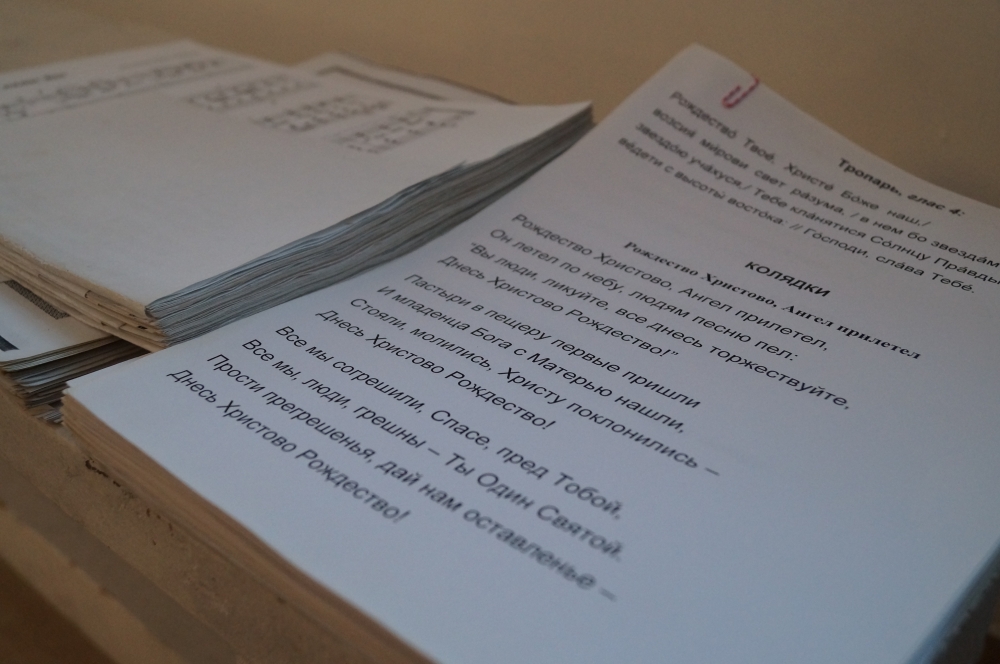 Тропарь, глас 4:
Рождество́ Твое́, Христе́ Бо́же наш,/
возсия́ ми́рови свет ра́зума, / в нем бо звезда́м
звездо́ю уча́хуся,/ Тебе́ кла́нятися Со́лнцу Пра́вды
ве́дети с высоты́ восто́ка: // Го́споди, сла́ва Тебе́.
КОЛЯДКИ
Рождество Христово, Ангел прилетел
Рождество Христово, Ангел прилетел,
Он летел по небу, людям песню пел:
"Вы люди, ликуйте, все днесь торжествуйте,
Днесь Христово Рождество!"
Пастыри в пещеру первые пришли
И младенца Бога с Матерью нашли,
Стояли, молились, Христу поклонились –
Днесь Христово Рождество!
Все мы согрешили, Спасе, пред Тобой,
Все мы, люди, грешны – Ты Один Святой.
Прости прегрешенья, дай нам оставленье –
Днесь Христово Рождество!